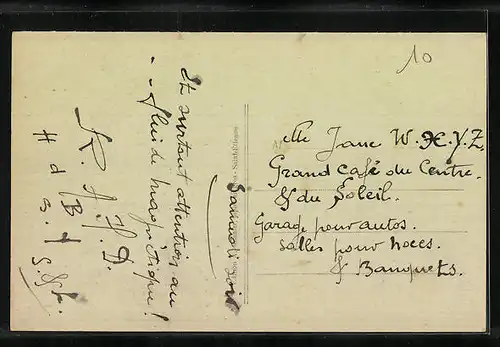 10
Et surtout attention au
fluide magnétique !
R. A. H. D.
# d B. f
Samedi soir
Mlle Jane W. X. Y. Z.
Grand Café du Centre.
& du Soleil.
Garage pour autos.
salles pour noces.
& Banquets.